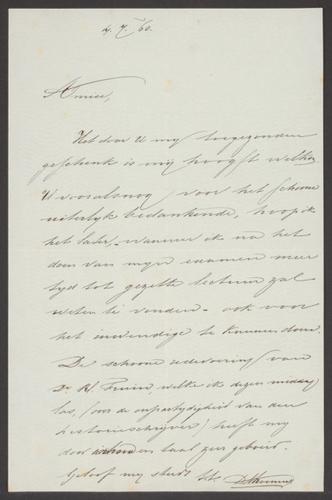 4. 7. /60.
Amice,
Het door U mij toegezonden
geschenk is mij hoogst welkom
U vooralsnog voor het schoone
uiterlijk bedankende, hoop ik
het later, wanneer ik na het
doen van mijn examen meer
tijd tot gezette lectuur zal
weten te vinden - ook voor
het inwendige te kunnen doen.
De schoone redevoering van
Dr. R. Fruin, welke ik dezen middag
las, (over de onpartijdigheid van den
historieschrijver) heeft mij
door en taal zeer geboeid.
Geloof my steeds tt